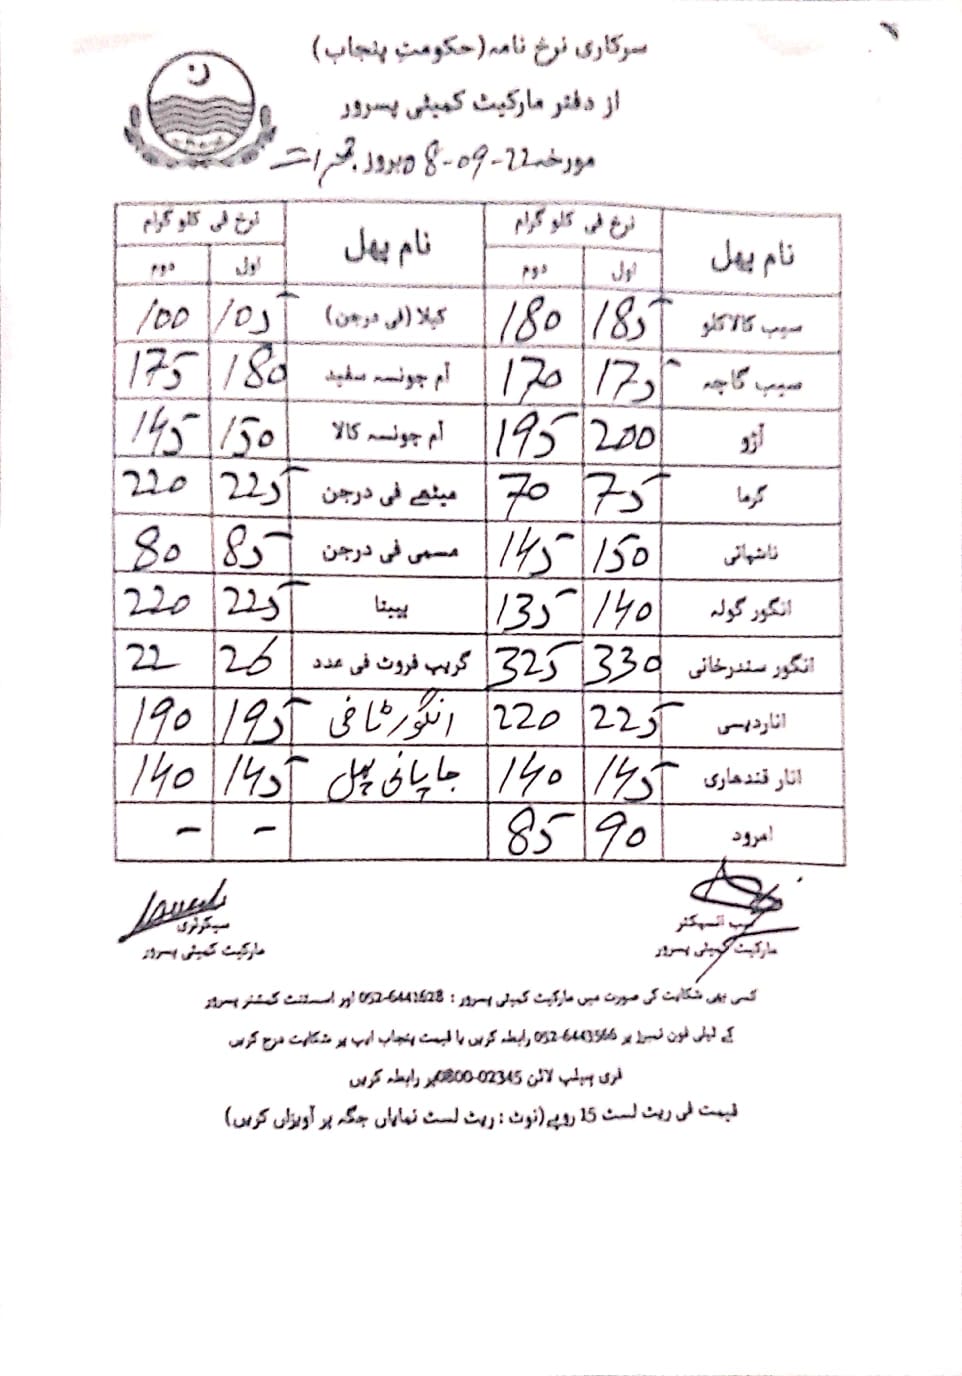 سرکاری نرخ نامہ (حکومتِ پنجاب)
از دفتر مارکیٹ کمیٹی پسرور
مورخہ 22-09-08 بروز جمعرات
نام پھل نرخ فی کلو گرام نام پھل نرخ فی کلو گرام
اول دوم اول دوم
سیب کالاکلو 185 180 کیلا (فی درجن) 105 100
سیب گاچہ 175 170 آم چونسہ سفید 180 175
آڑو 200 195 آم چونسہ کالا 150 145
گرما 75 70 میٹھے فی درجن 225 220
ناشپاتی 150 145 مسمی فی درجن 85 80
انگور گولہ 140 135 پپیتا 225 220
انگور سندرخانی 330 325 گریپ فروٹ فی عدد 26 22
انار دیسی 225 220 انگور ٹافی 195 190
انار قندھاری 145 140 جاپانی پھل 145 140
امرود 90 85 - -
سب انسپکٹر سیکرٹری
مارکیٹ کمیٹی پسرور مارکیٹ کمیٹی پسرور
کسی بھی شکایت کی صورت میں مارکیٹ کمیٹی پسرور : 052-6441628 اور اسسٹنٹ کمشنر پسرور
کے ٹیلی فون نمبرز پر 052-6443566 رابطہ کریں یا قیمت پنجاب ایپ پر شکایت درج کریں
فری ہیلپ لائن 0800-02345 پر رابطہ کریں
قیمت فی ریٹ لسٹ 15 روپے (نوٹ : ریٹ لسٹ نمایاں جگہ پر آویزاں کریں)